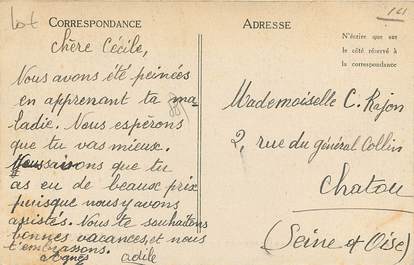 lot
161
CORRESPONDANCE
ADRESSE
N'écrire que sur
le côté réservé à
la correspondance
Chère Cécile,
Nous avons été peinées
en apprenant ta ma-
ladie. Nous espérons
que tu vas mieux.
Nous savons que tu
as eu de beaux prix
puisque nous y avons
assistés. Nous te souhaitons
bonnes vacances, et nous
t'embrassons.
Agnès Odile
Mademoiselle C. Rajon
2, rue du général Collin
Chatou
(Seine & Oise)